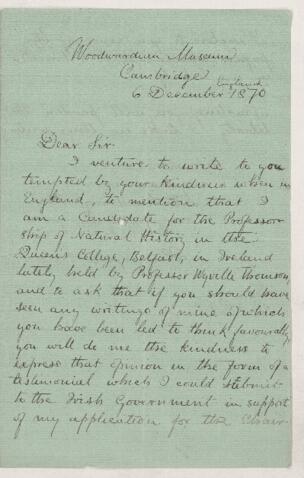 Woodwardian Museum
Cambridge
England
6 December 1870
Dear Sir
I venture to write to you
tempted by your kindness when in
England, to mention that I
am a Candidate for the Professor
ship of Natural History in the
Queens College, Belfast, in Ireland
lately held by Professor Wyville Thomson
and to ask that if you should have
seen any writings of mine of which
you have been led to think favourably
you will do me the kindness to
express that opinion in the form of a
testimonial which I could submit
to the Irish Government in support
of my application for the Chair